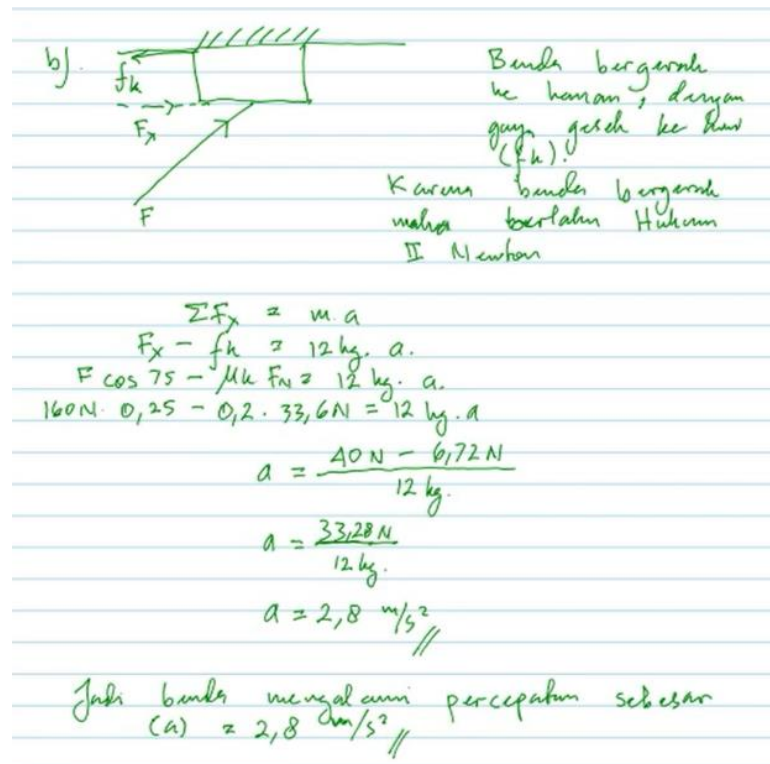 b).
fk
Fx
F
Benda bergerak
ke kanan, dengan
gaya gesek ke kiri
(fk).
Karena benda bergerak
maka berlaku Hukum
II Newton
ΣFx = m.a
Fx - fk = 12 kg. a.
F cos 75 - μk FN = 12 kg. a.
160N. 0,25 - 0,2. 33,6N = 12 kg.a
a = 40N - 6,72N / 12 kg.
a = 33,28N / 12 kg.
a = 2,8 m/s² //
Jadi benda mengalami percepatan sebesar
(a) = 2,8 m/s² //